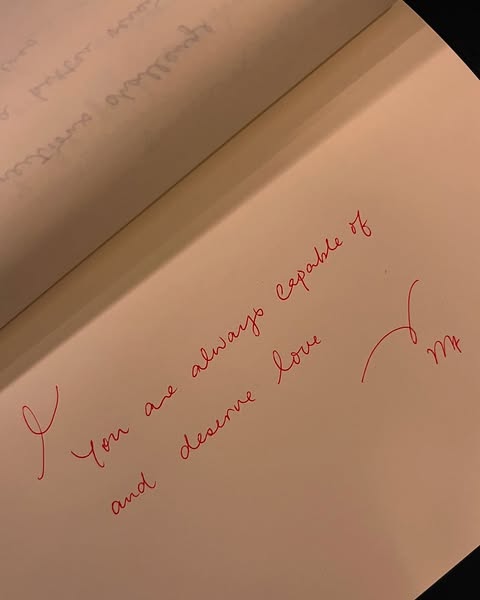 You are always capable of
and deserve love
MA